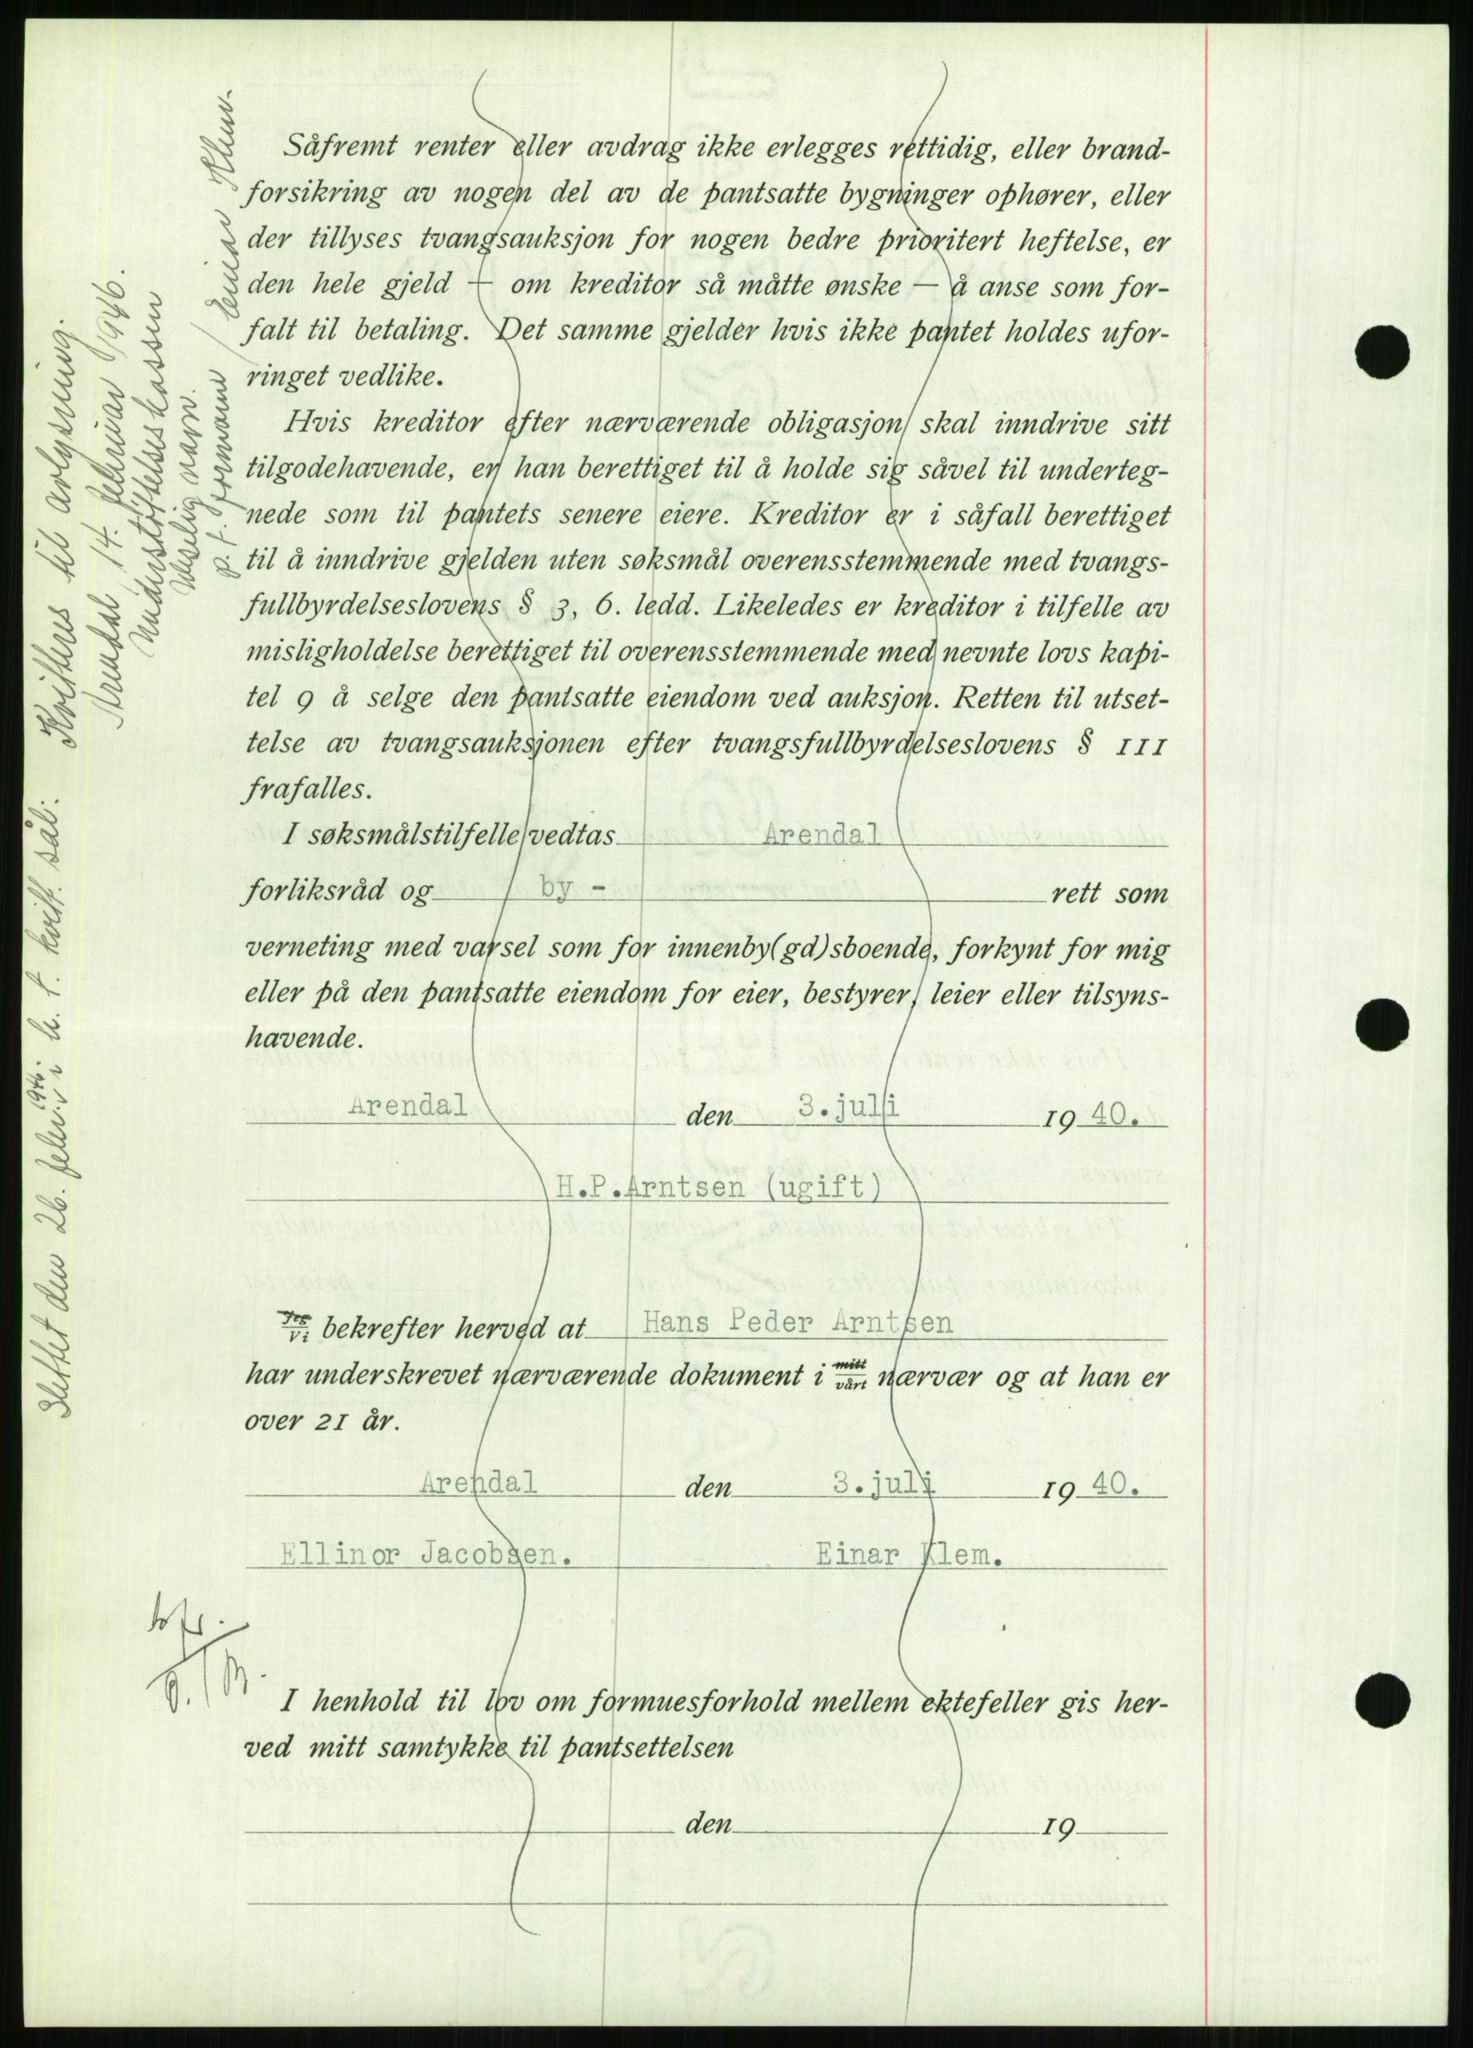 Såfremt renter eller avdrag ikke erlegges rettidig, eller brand-
forsikring av nogen del av de pantsatte bygninger ophører, eller
der tillyses tvangsauksjon for nogen bedre prioritert heftelse, er
den hele gjeld — om kreditor så måtte ønske — å anse som for-
falt til betaling. Det samme gjelder hvis ikke pantet holdes ufor-
ringet vedlike.
Hvis kreditor efter nærværende obligasjon skal inndrive sitt
tilgodehavende, er han berettiget til å holde sig såvel til underteg-
nede som til pantets senere eiere. Kreditor er i såfall berettiget
til å inndrive gjelden uten søksmål overensstemmende med tvangs-
fullbyrdelseslovens § 3, 6. ledd. Likeledes er kreditor i tilfelle av
misligholdelse berettiget til overensstemmende med nevnte lovs kapi-
tel 9 å selge den pantsatte eiendom ved auksjon. Retten til utset-
telse av tvangsauksjonen efter tvangsfullbyrdelseslovens § 111
frafalles.
I søksmålstilfelle vedtas Arendal
forliksråd og by - rett som
verneting med varsel som for innenby(gd)sboende, forkynt for mig
eller på den pantsatte eiendom for eier, bestyrer, leier eller tilsyns-
havende.
Arendal den 3. juli 1940.
H.P.Arntsen (ugift)
Jeg
Vi bekrefter herved at Hans Peder Arntsen
har underskrevet nærværende dokument i mitt
vårt nærvær og at han er
over 21 år.
Arendal den 3. juli 1940.
Ellinor Jacobsen. Einar Klem.
I henhold til lov om formuesforhold mellem ektefeller gis her-
ved mitt samtykke til pantsettelsen
den 19
Slettet den 26. febr. 1946 i h. t. kvitt. sål:
Kvitteres til avlysning.
Arendal 14. februar 1946.
Understøttelseskassen
Usselig navn.
p. t. formann / Einar Klem.